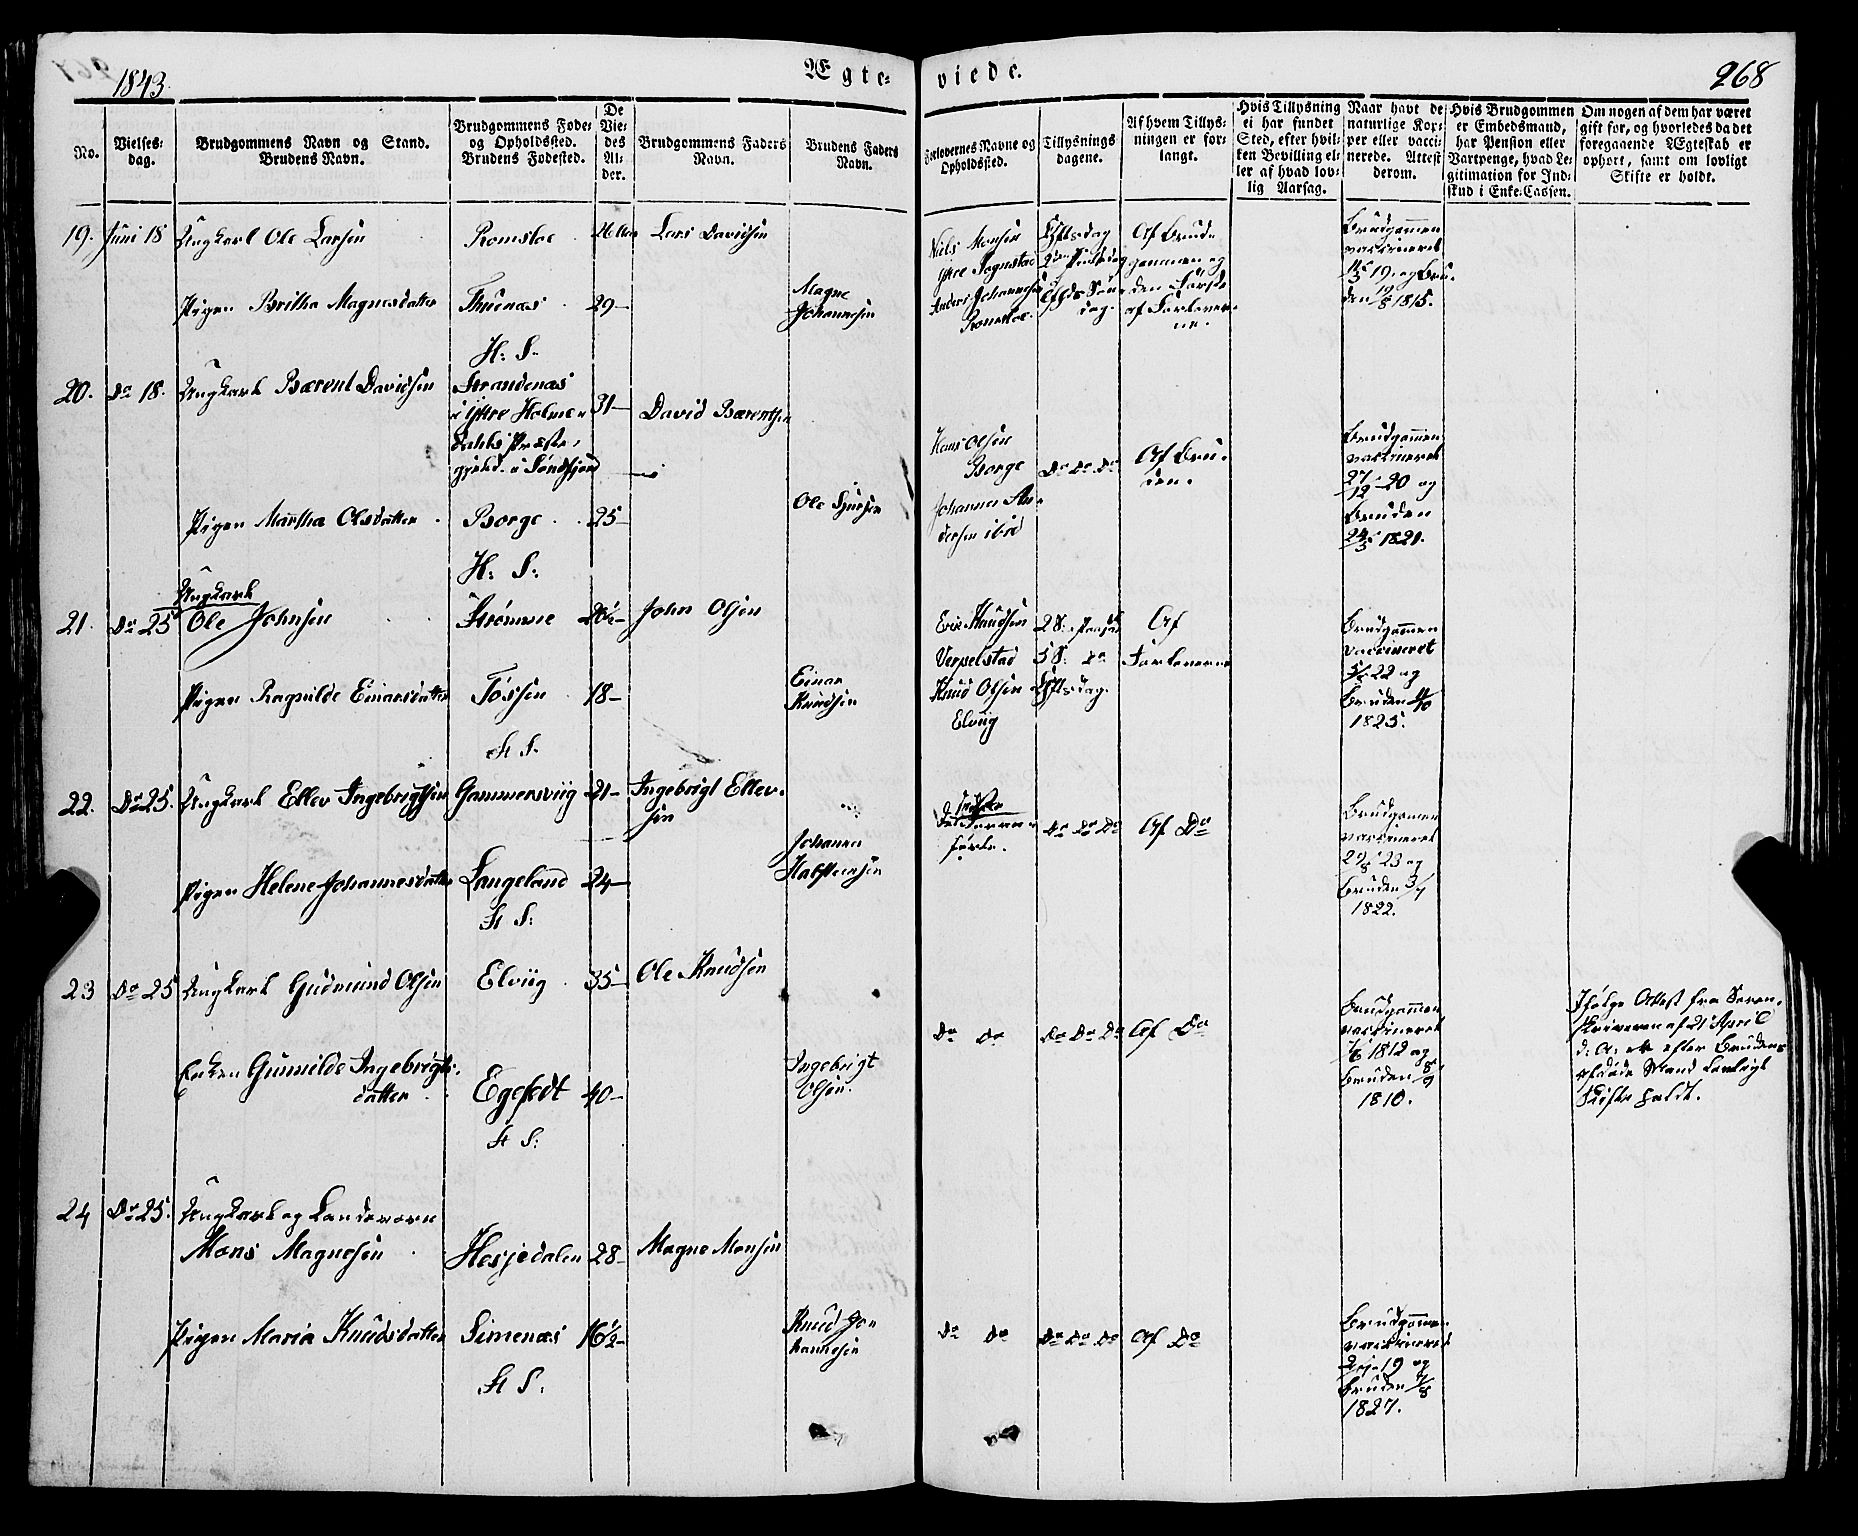 1843.
Ægte-
viede.
268
No.
Vielses-
dag.
Brudgommens Navn og Stand.
Brudens Navn.
Brudgommens Føde-
og Opholdssted.
Brudens Fødested.
De
Vie-
des
Al-
der.
Brudgommens Faders
Navn.
Brudens Faders
Navn.
Forlovernes Navne og
Opholdssted.
Tillysnings-
dagene.
Af hvem Tillys-
ningen er for-
langt.
Hvis Tillysning
ei har fundet
Sted, efter hvil-
ken Bevilling el-
ler af hvad lov-
lig Aarsag.
Naar havt de
naturlige Kop-
per eller vacci-
nerede. Attest
derom.
Hvis Brudgommen
er Embedsmand,
har Pension eller
Vartpenge, hvad Le-
gitimation for Ind-
skud i Enke-Cassen.
Om nogen af dem har været
gift før, og hvorledes da det
foregaaende Ægteskab er
ophørt, samt om lovligt
Skifte er holdt.
19. Juni 18 Ungkarl Ole Larsen Romsloe 26 Lars Davidsen
Niels Monsen
Ytre
Anders Johannesen
Romsloe.
Af Brud-
gommen og
den Første
af Forlover-
ne.
Brudgommen
vaccineret
19. og Bru-
den 19/8 1815.
Pigen Britha Magnesdatter Thuenæs 29 - Magne
Johannesen
H: S.
20. Do 18. Ungkarl Bærent Davidsen Strandenæs
i Ytre Holme-
dahls Præste-
gjeld i Søndfjord
31 - David Bærentsen
Hans Olsen
Borge
Johannes An-
dersen ibid
Do Do Do
Af Bru-
den.
Brudgommen
vaccineret
27/12 20 og
Bruden
24/5 1821.
Pigen Martha Olsdatter Borge 25 - Ole Sjursen
H: S:
Ungkarl
21. Do 25 Ole Johnsen Strømme 20½ - John Olsen
Eric Knudsen
Verpelstad
Knud Olsen
Elviig
Af
Forloverne
Brudgommen
vaccineret
22 og
Bruden
1825.
Pigen Ragnilde Einarsdatter Fossen 18 - Einar
Knudsen
H S.
22. Do 25. Ungkarl Ellev Ingebrigtsen Gammersviig 21 - Ingebrigt Ellev-
sen
førte.
Do Do Do
Af Do
Brudgommen
vaccineret
23 og
Bruden 3/7
1822.
Pigen Helene Johannesdatter Langeland 24 - Johannes
Halsteensen
H S:
23 Do 25 Ungkarl Gudmund Olsen Elviig 35 - Ole Knudsen
Do Do
Do Do Do
Af Do
Brudgommen
vaccineret
1812 og
Bruden 8/9
1810.
Ifølge Attest fra Soren-
skriveren af 21 April
d: A: er efter Brudens
afdøde Mand lovligt
Skifte holdt.
Enken Gunnilde Ingebrigts-
datter Egefedt 40 - Ingebrigt
Olsen.
H S:
24 Do 25. Ungkarl og Landeværn
Mons Magnesen Hesjedalen 28 - Magne Monsen
Do Do
Do Do Do
Af Do
Brudgommen
vaccineret
19 og
Bruden
1827.
Pigen Maria Knudsdatter Simenæs 16½ - Knud Jo-
hannesen
H S: